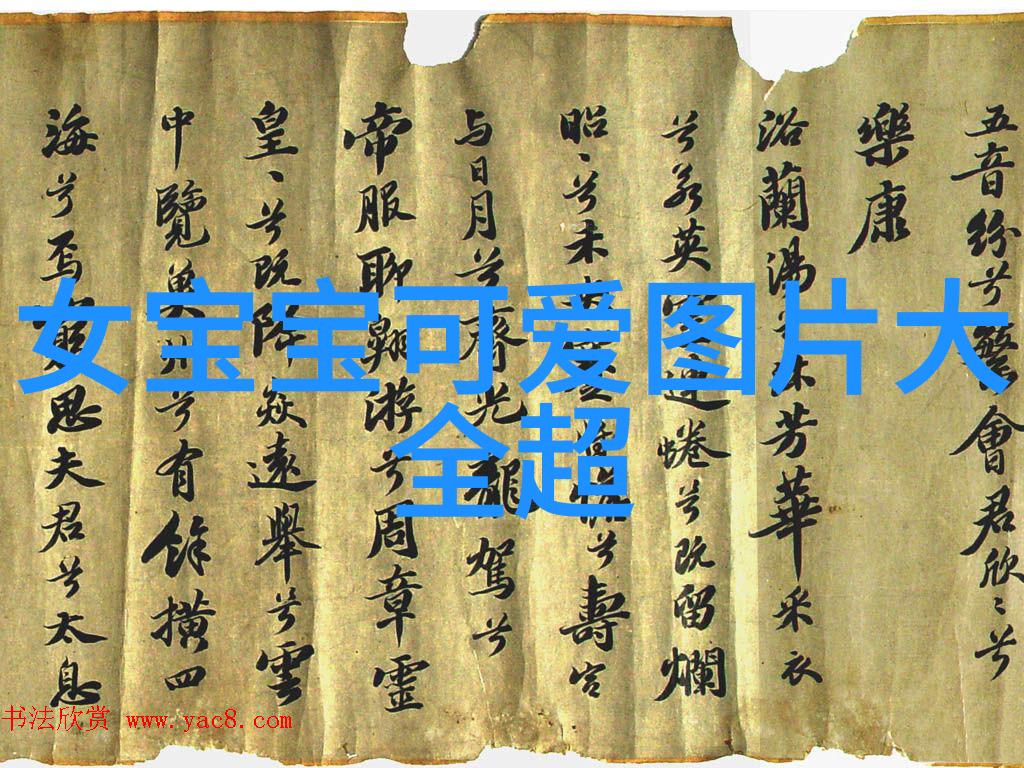 五音紛兮繁會君欣〻兮
樂康
浴蘭湯兮沐芳華采衣
兮若英連蜷兮既留爛
昭〻兮未央兮壽宮
与日月兮齊光龍駕兮
帝服聊翱游兮周章靈
皇〻兮既降猋遠舉兮雲
中覽冀州兮有餘橫四
海兮焉窮思夫君兮太息
女宝宝可爱图片大
全超
书法欣赏 www.yac8.com